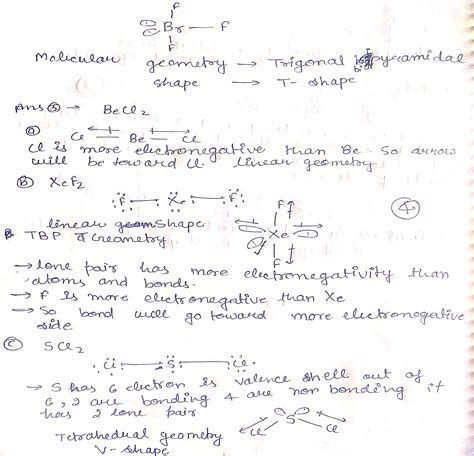 F
Br — F
F
Molicular geometry → Trigonal bipyramidal
shape → T- shape
Ans ③ → BeCl2
ⓐ Cl Be Cl
Cl is more electronegative than Be. So arrow
will be toward Cl. linear geometry
Ⓑ XeF2
F Xe F
F
linear geom Shape
④
Xe
F
B TBP Geometry
→ lone pair has more electronegativity than
atoms and bonds.
→ F is more electronegative than Xe
→ So bond will go toward more electronegative
side
Ⓒ SCl2
Cl S Cl
→ S has 6 electron is valence shell out of
6, 2 are bonding 4 are non bonding it
has 2 lone pair
S
Cl Cl
Tetrahedral geometry
V- shape